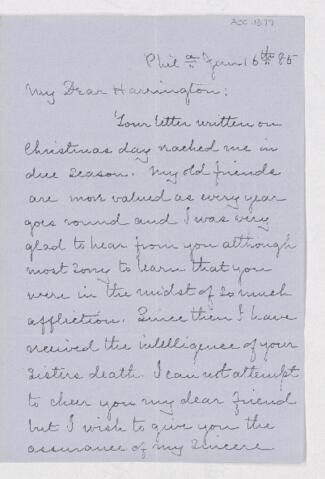 Acc 1377
Phila Jan 16th 85
My Dear Harrington:
Your letter written on
Christmas day reached me in
due season. My old friends
are more valued as every year
goes round and I was very
glad to hear from you although
most sorry to learn that you
were in the midst of so much
affliction. Since then I have
received the intelligence of your
sisters death. I can not attempt
to cheer you my dear friend
but I wish to give you the
assurance of my sincere